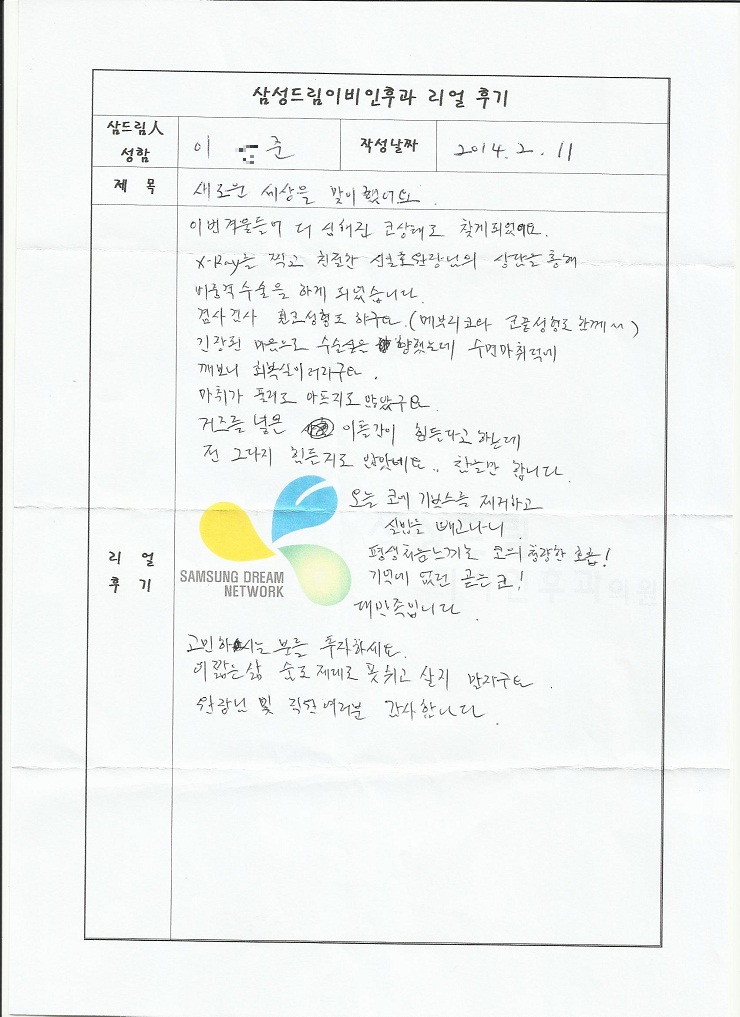 삼성드림이비인후과 리얼 후기
삼드림人 성함
이 준
작성날짜
2014. 2. 11
제 목
새로운 세상을 맞이했어요.
리 얼 후 기
이번겨울들어 더 심해진 코상태로 찾게되었어요.
X-Ray를 찍고 친절한 신호원장님의 상담을 통해
비중격수술을 하게 되었습니다.
겸사겸사 휜코성형도 하구요.(메부리코와 코끝성형도 함께~)
긴장된 마음으로 수술실을 향했는데 수면마취덕에
깨보니 회복실이더라구요.
마취가 풀려도 아프지도 않았구요.
거즈를 넣은 이틀간이 힘든다고 하는데
전 그다지 힘든지도 않았네요.. 한능만 합니다.
오늘 코에 기브스를 제거하고
실밥을 떼고나니.
평생처음느끼는 코의 청량한 호흡!
기억에 없던 곧은코!
대만족입니다.
SAMSUNG DREAM
NETWORK
고민하시는 분들 투자하세요.
이 짧은삶 숨도제대로 못쉬고 살지 말자구요.
원장님 및 직원여러분 감사합니다.